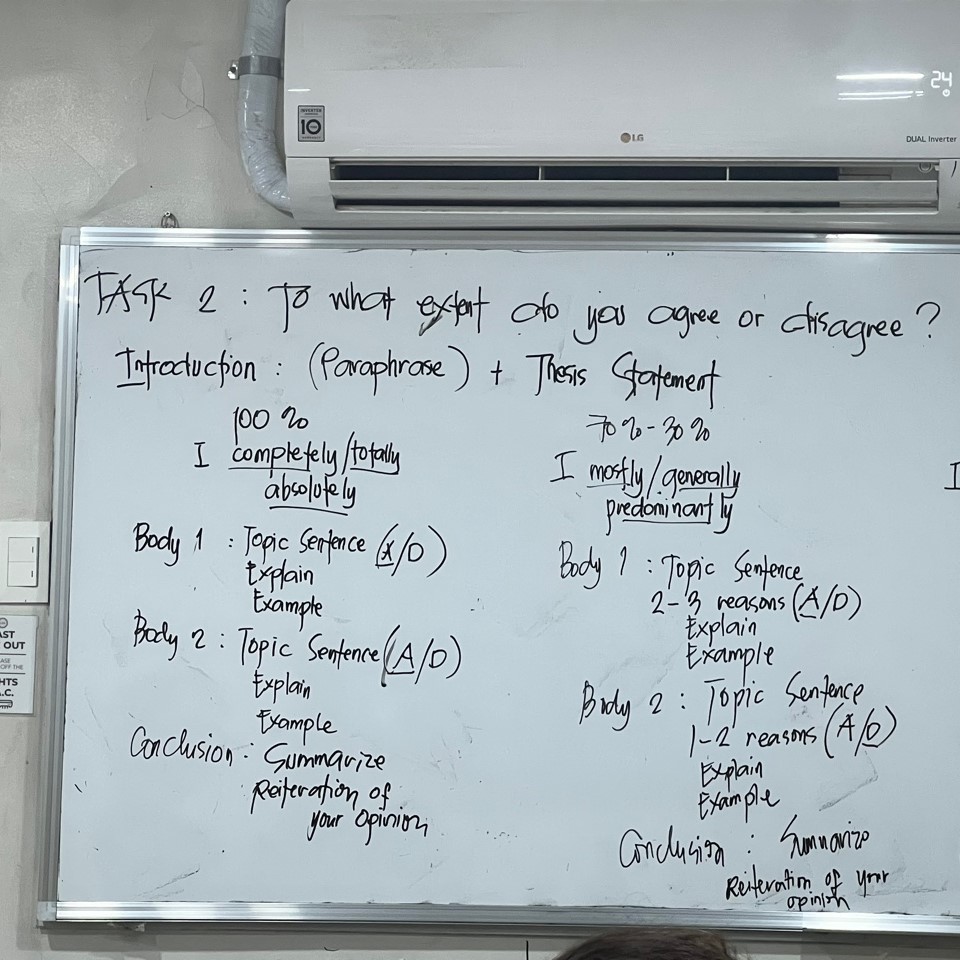 24
INVERTER
10
LG
DUAL Inverter
TASK 2 : To what extent do you agree or disagree ?
Introduction : (Paraphrase) + Thesis Statement
100 %
I completely/totally
absolutely
Body 1 : Topic Sentence (A/D)
Explain
Example
Body 2 : Topic Sentence (A/D)
Explain
Example
Conclusion : Summarize
Reiteration of
your opinion
70 % - 30 %
I mostly/generally
predominantly
Body 1 : Topic Sentence
2-3 reasons (A/D)
Explain
Example
Body 2 : Topic Sentence
1-2 reasons (A/D)
Explain
Example
Conclusion : Summarize
Reiteration of your
opinion
I
AST
OUT
OFF THE
HTS
A.C.